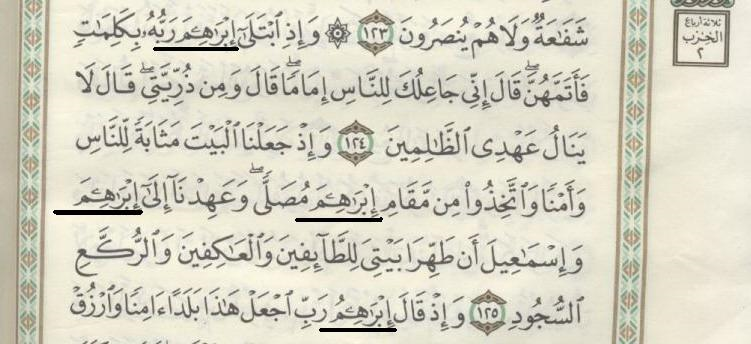 شَفَٰعَةٌ وَلَا هُمْ يُنصَرُونَ ١٢٣ ۞ وَإِذِ ٱبْتَلَىٰٓ إِبْرَٰهِـۧمَ رَبُّهُۥ بِكَلِمَٰتٍ
فَأَتَمَّهُنَّ ۖ قَالَ إِنِّى جَاعِلُكَ لِلنَّاسِ إِمَامًا ۖ قَالَ وَمِن ذُرِّيَّتِى ۖ قَالَ لَا
يَنَالُ عَهْدِى ٱلظَّٰلِمِينَ ١٢٤ وَإِذْ جَعَلْنَا ٱلْبَيْتَ مَثَابَةً لِّلنَّاسِ
وَأَمْنًا وَٱتَّخِذُوا۟ مِن مَّقَامِ إِبْرَٰهِـۧمَ مُصَلًّى ۖ وَعَهِدْنَآ إِلَىٰٓ إِبْرَٰهِـۧمَ
وَإِسْمَٰعِيلَ أَن طَهِّرَا بَيْتِىَ لِلطَّآئِفِينَ وَٱلْعَٰكِفِينَ وَٱلرُّكَّعِ
ٱلسُّجُودِ ١٢٥ وَإِذْ قَالَ إِبْرَٰهِـۧمُ رَبِّ ٱجْعَلْ هَٰذَا بَلَدًا ءَامِنًا وَٱرْزُقْ
ثلاثة أرباع
الحزب
٢